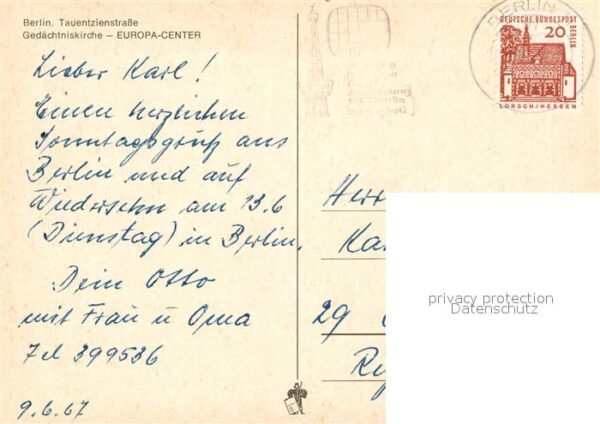 Berlin. Tauentzienstraße
Gedächtniskirche – EUROPA-CENTER
Lieber Karl!
Einen herzlichen
Sonntagsgruß aus
Berlin und auf
Wiedersehn am 13.6
(Dienstag) in Berlin.
Dein Otto
mit Frau u Oma
Tel 399536
9.6.67
BERLIN
DEUTSCHE BUNDESPOST
BERLIN
20
LORSCH/HESSEN
Herr
Ka
29
privacy protection
Datenschutz